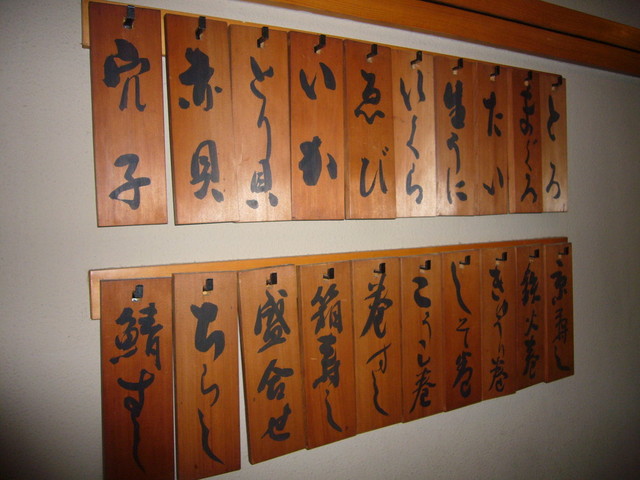 とろ
まぐろ
たい
生うに
いくら
ゑび
いか
とり貝
赤貝
穴子
鉄火巻
きゅうり巻
しそ巻
こうこ巻
巻すし
箱寿し
盛合せ
ちらし
鯖すし